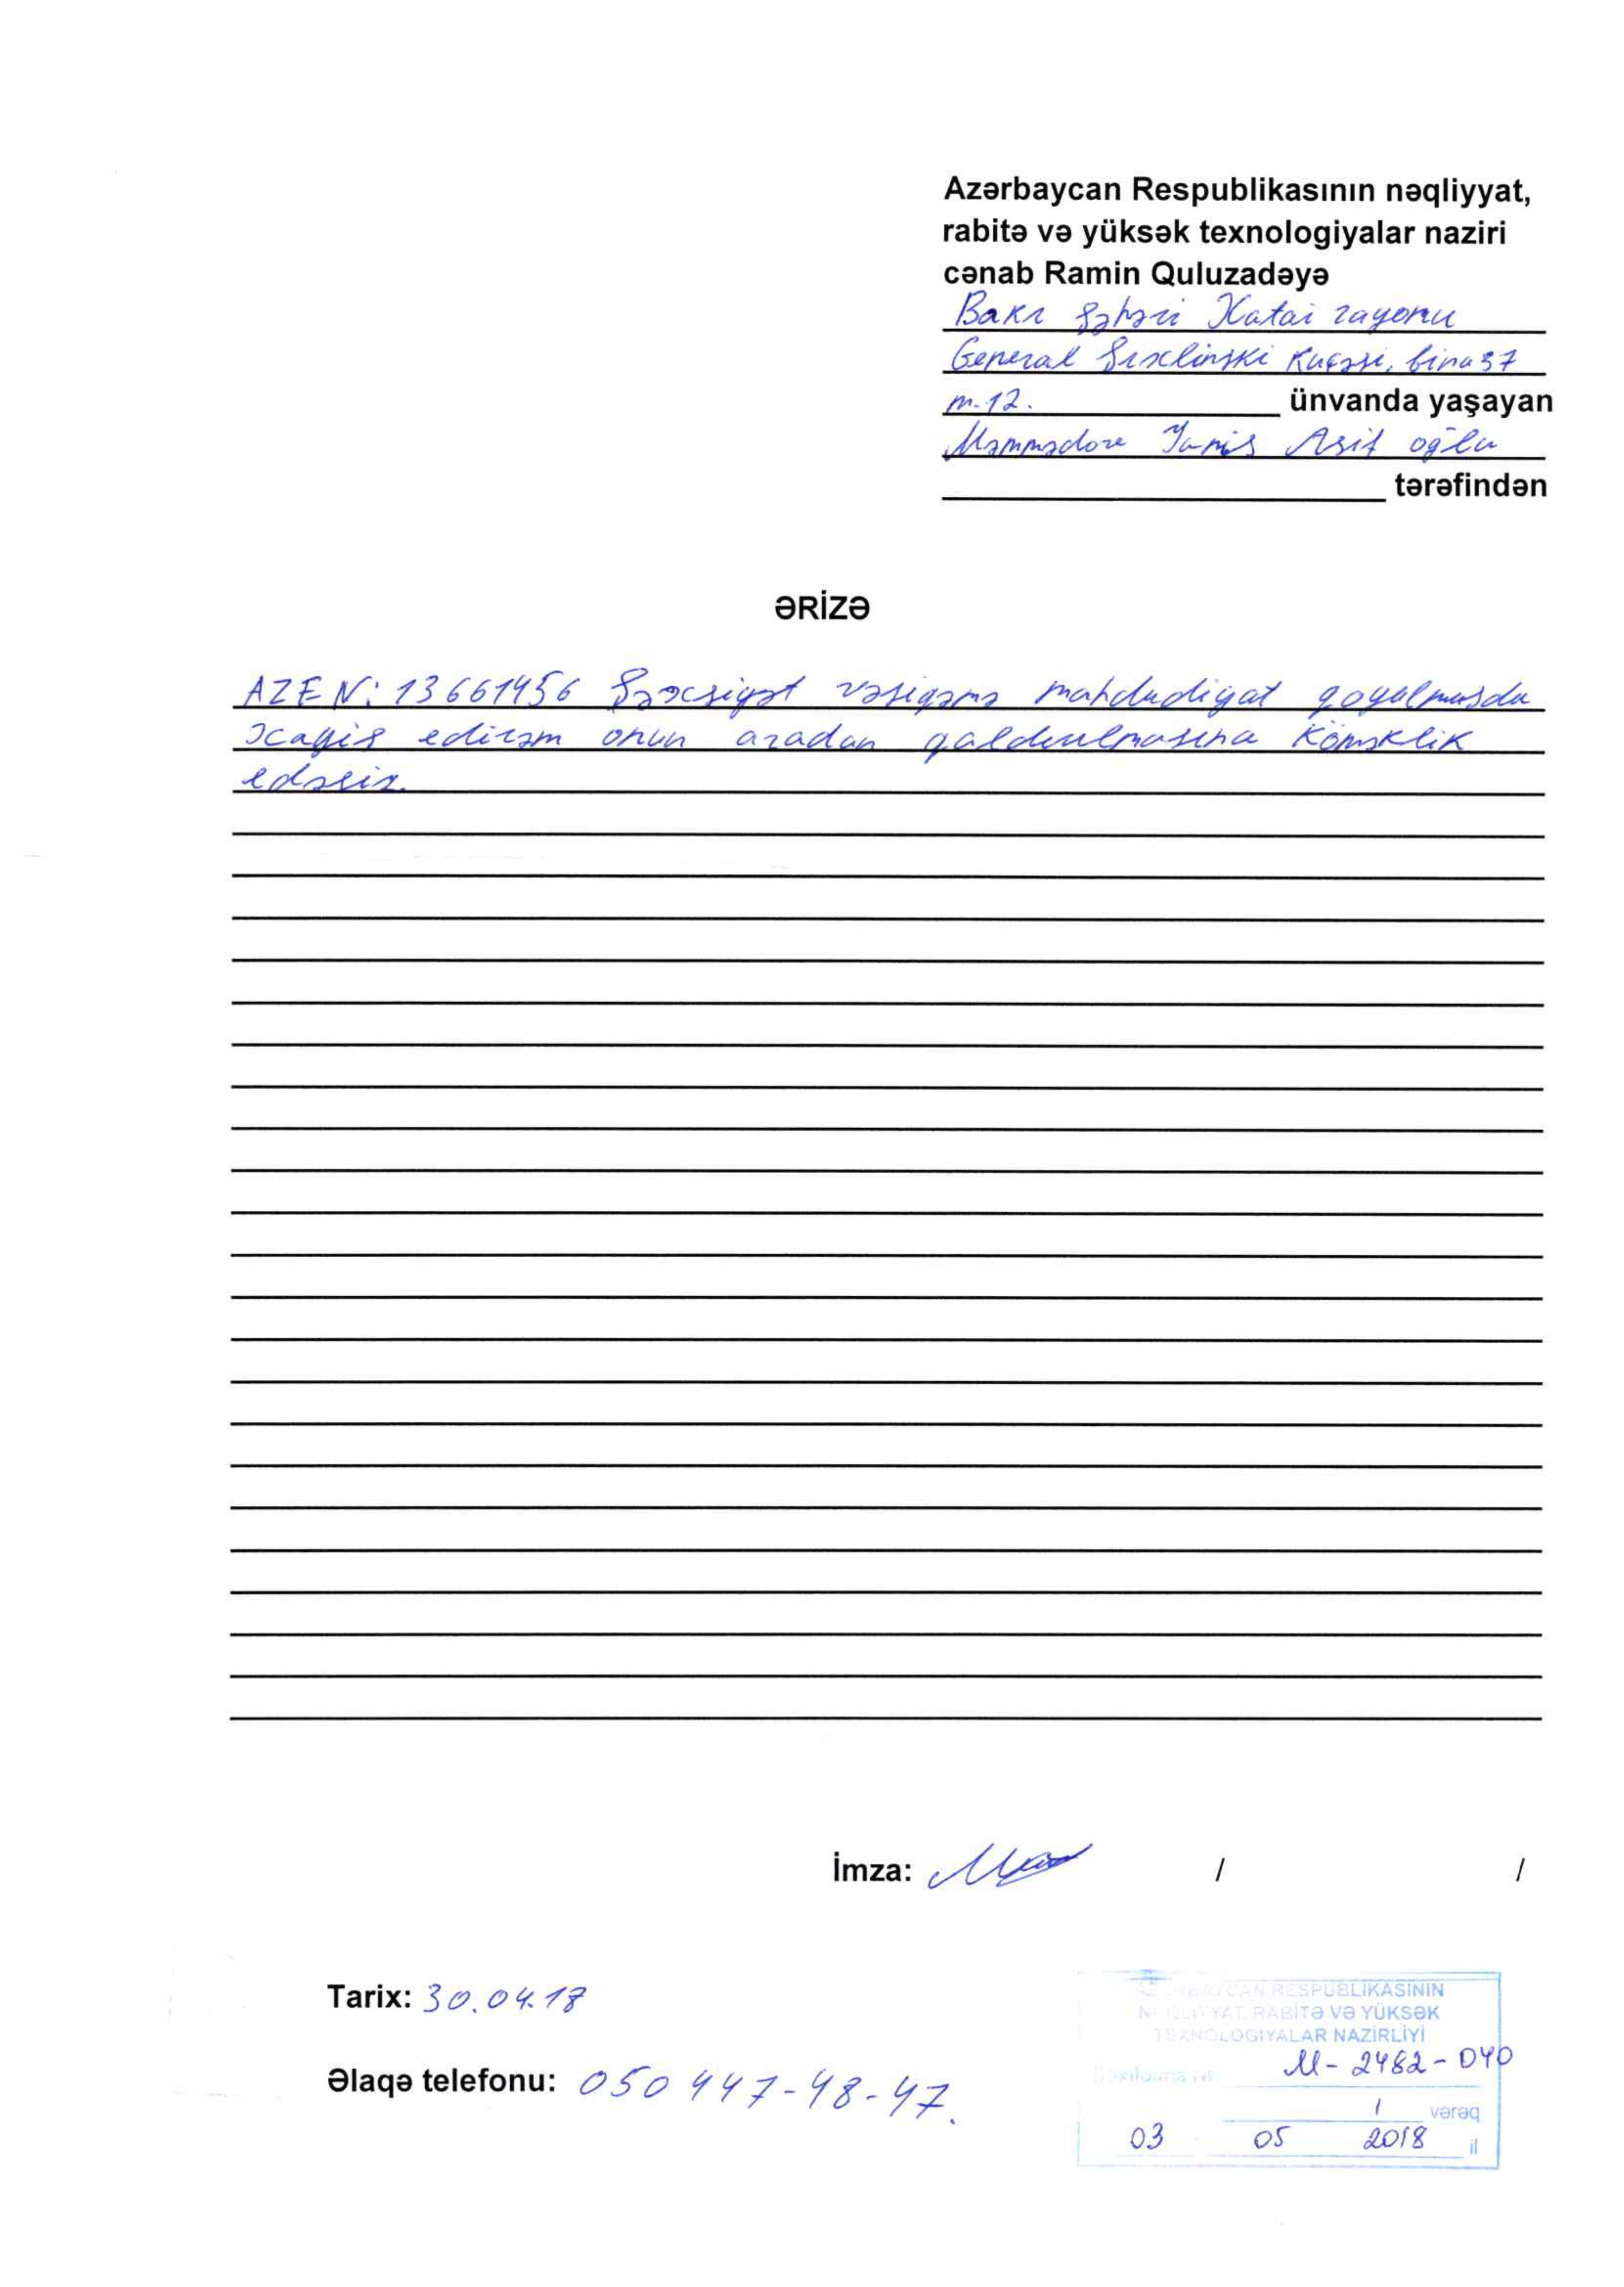 Azərbaycan Respublikasının nəqliyyat,
rabitə və yüksək texnologiyalar naziri
cənab Ramin Quluzadəyə
Bakı şəhəri Xatai rayonu
General Şıxlinski küçəsi, bina 37
m-12. ünvanda yaşayan
Məmmədov Asif oğlu
tərəfindən
ƏRİZƏ
AZE N: 13661456 Şəxsiyət vəsiqəmə məhdudiyat qoyulmuşdu
xahiş edirəm onun aradan qaldırılmasına köməklik
edəsiz.
İmza: / /
Tarix: 30.04.18
Əlaqə telefonu: 050 447-48-47.
AZƏRBAYCAN RESPUBLİKASININ
NƏQLİYYAT, RABİTƏ VƏ YÜKSƏK
TEXNOLOGİYALAR NAZİRLİYİ
M-2482-040
1 vərəq
03 05 2018 il